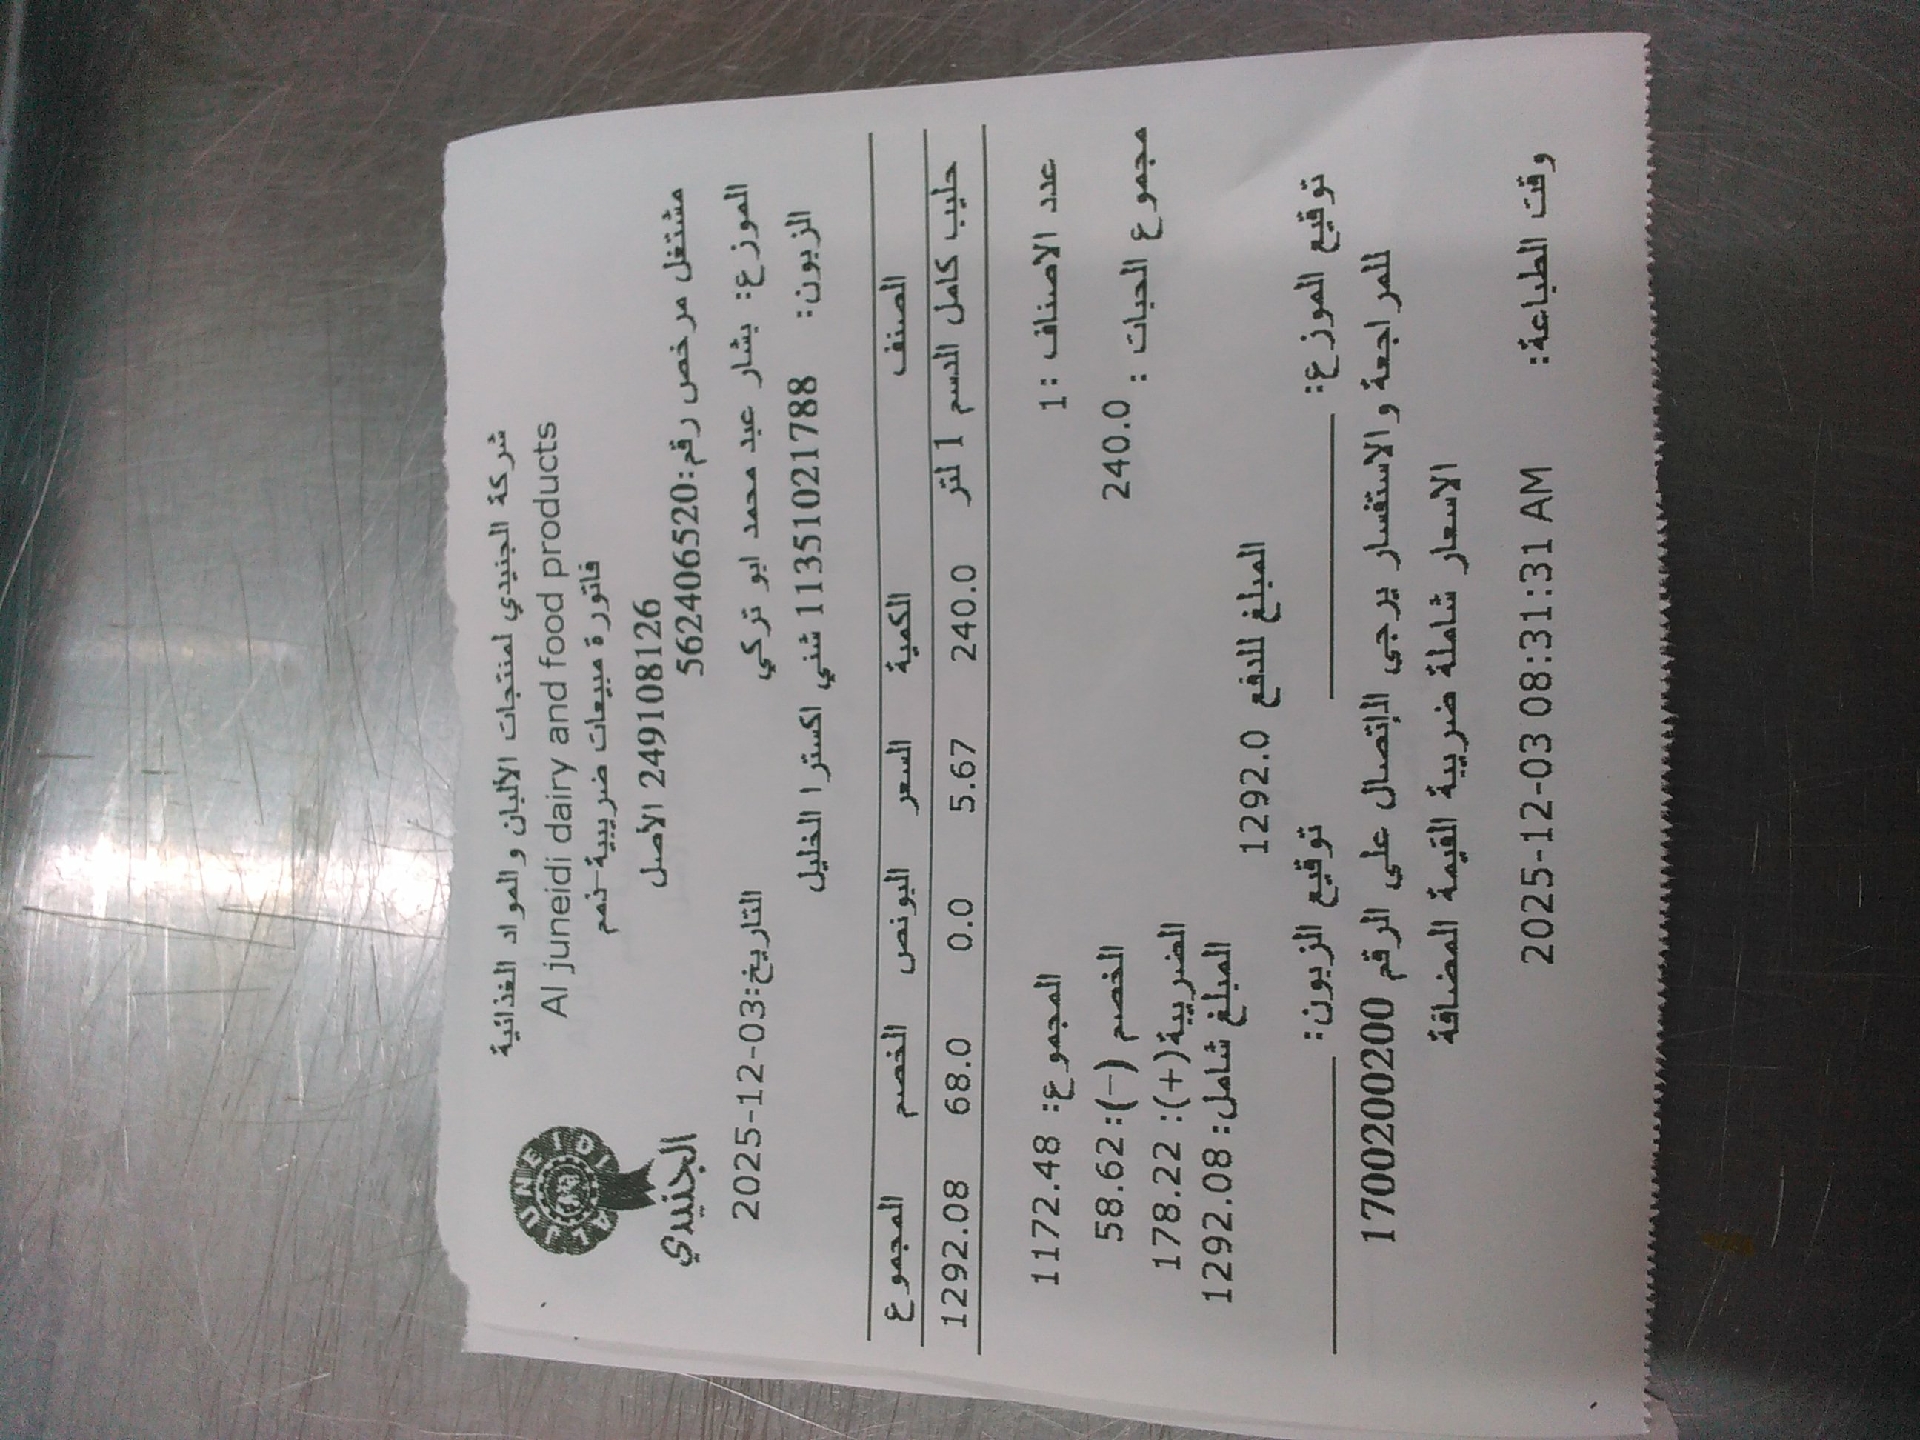 شركة الجنيدي لمنتجات الألبان والمواد الغذائية
Al juneidi dairy and food products
فاتورة مبيعات ضريبية-ذمم
249108126 الأصل
ALJUNEIDI
الجنيدي
مشتغل مرخص رقم:562406520
الموزع: بشار عبد محمد ابو تركي
التاريخ:2025-12-03
الزبون: 11351021788 شني اكسترا الخليل
الصنف الكمية السعر البونص الخصم المجموع
حليب كامل الدسم 1 لتر 240.0 5.67 0.0 68.0 1292.08
عدد الاصناف :1 المجموع: 1172.48
مجموع الحبات : 240.0 الخصم (-): 58.62
الضريبة(+): 178.22
المبلغ شامل: 1292.08
المبلغ للدفع 1292.0
توقيع الموزع: توقيع الزبون:
للمراجعة والاستفسار يرجى الإتصال على الرقم 1700200200
الاسعار شاملة ضريبة القيمة المضافة
وقت الطباعة: 2025-12-03 08:31:31 AM